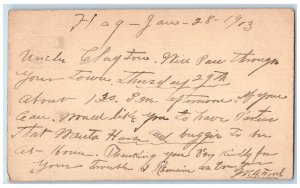 Hag - Jan - 28 - 1913
Uncle Clayton. Will Pass through
Your Town Thursday 29th
about 1.30 P.m. afternoon. If you
Can. Would like you to have
that Wants Horse and buggie to be
at Home. Thanking you Very Kindly for
Your Trouble I Remain as Ever